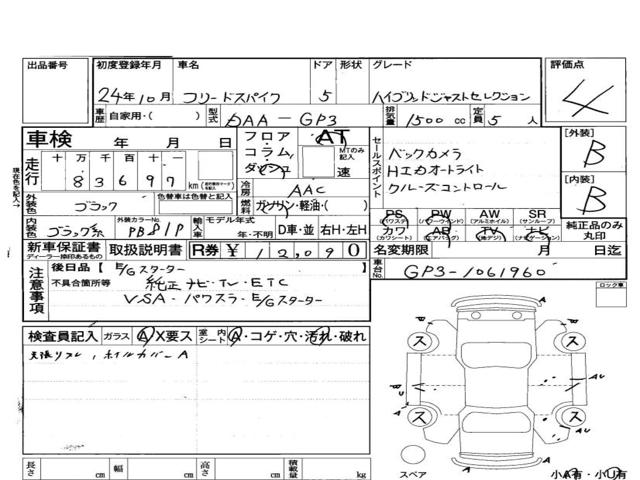 出品番号 初度登録年月 車名 ドア 形状 グレード 評価点
24年10月 フリードスパイク 5 ハイブリッドジャストセレクション 4
車歴 自家用・( ) 型式 DAA-GP3 排気量 1500 cc 定員 5 人
車検 年 月 日 フロア・コラム・ AT MTのみ記入 速
走行 十 万 千 百 十 一
8 3 6 9 7 km
冷房 AAC
セールスポイント
バックカメラ
HIDオートライト
クルーズコントロール
[外装] B
[内装] B
現在色を記入→
外装色 ブラック 色替車は色替と記入 燃料 ガソリン・軽油・( )
内装色 ブラック系 外装カラーNo. 輸入車 モデル年式 年・不明 D車・並 右H・左H
PS (パワステ) PW (パワーウインド) AW (アルミホイル) SR (サンルーフ)
カワ (カワシート) AB (エアバッグ) TV (地デジ) ナビ (ナビゲーション)
純正品のみ丸印
新車保証書 ディーラー捺印あるもの 取扱説明書 R券 ¥ 12,090
名変期限 月 日迄
注意事項
後日品 [ E/Gスターター ]
不具合箇所等 純正ナビ・TV・ETC
VSA・パワスラ・E/Gスターター
車台No. GP3-1061960
ロック車
検査員記入 ガラス A X要ス 室内シート A・コゲ・穴・汚れ・破れ
ホイルカバーA
A
ス ス
ス ス
スペア
長さ cm 幅 cm 高さ cm 積載量 kg
小A有・小U有